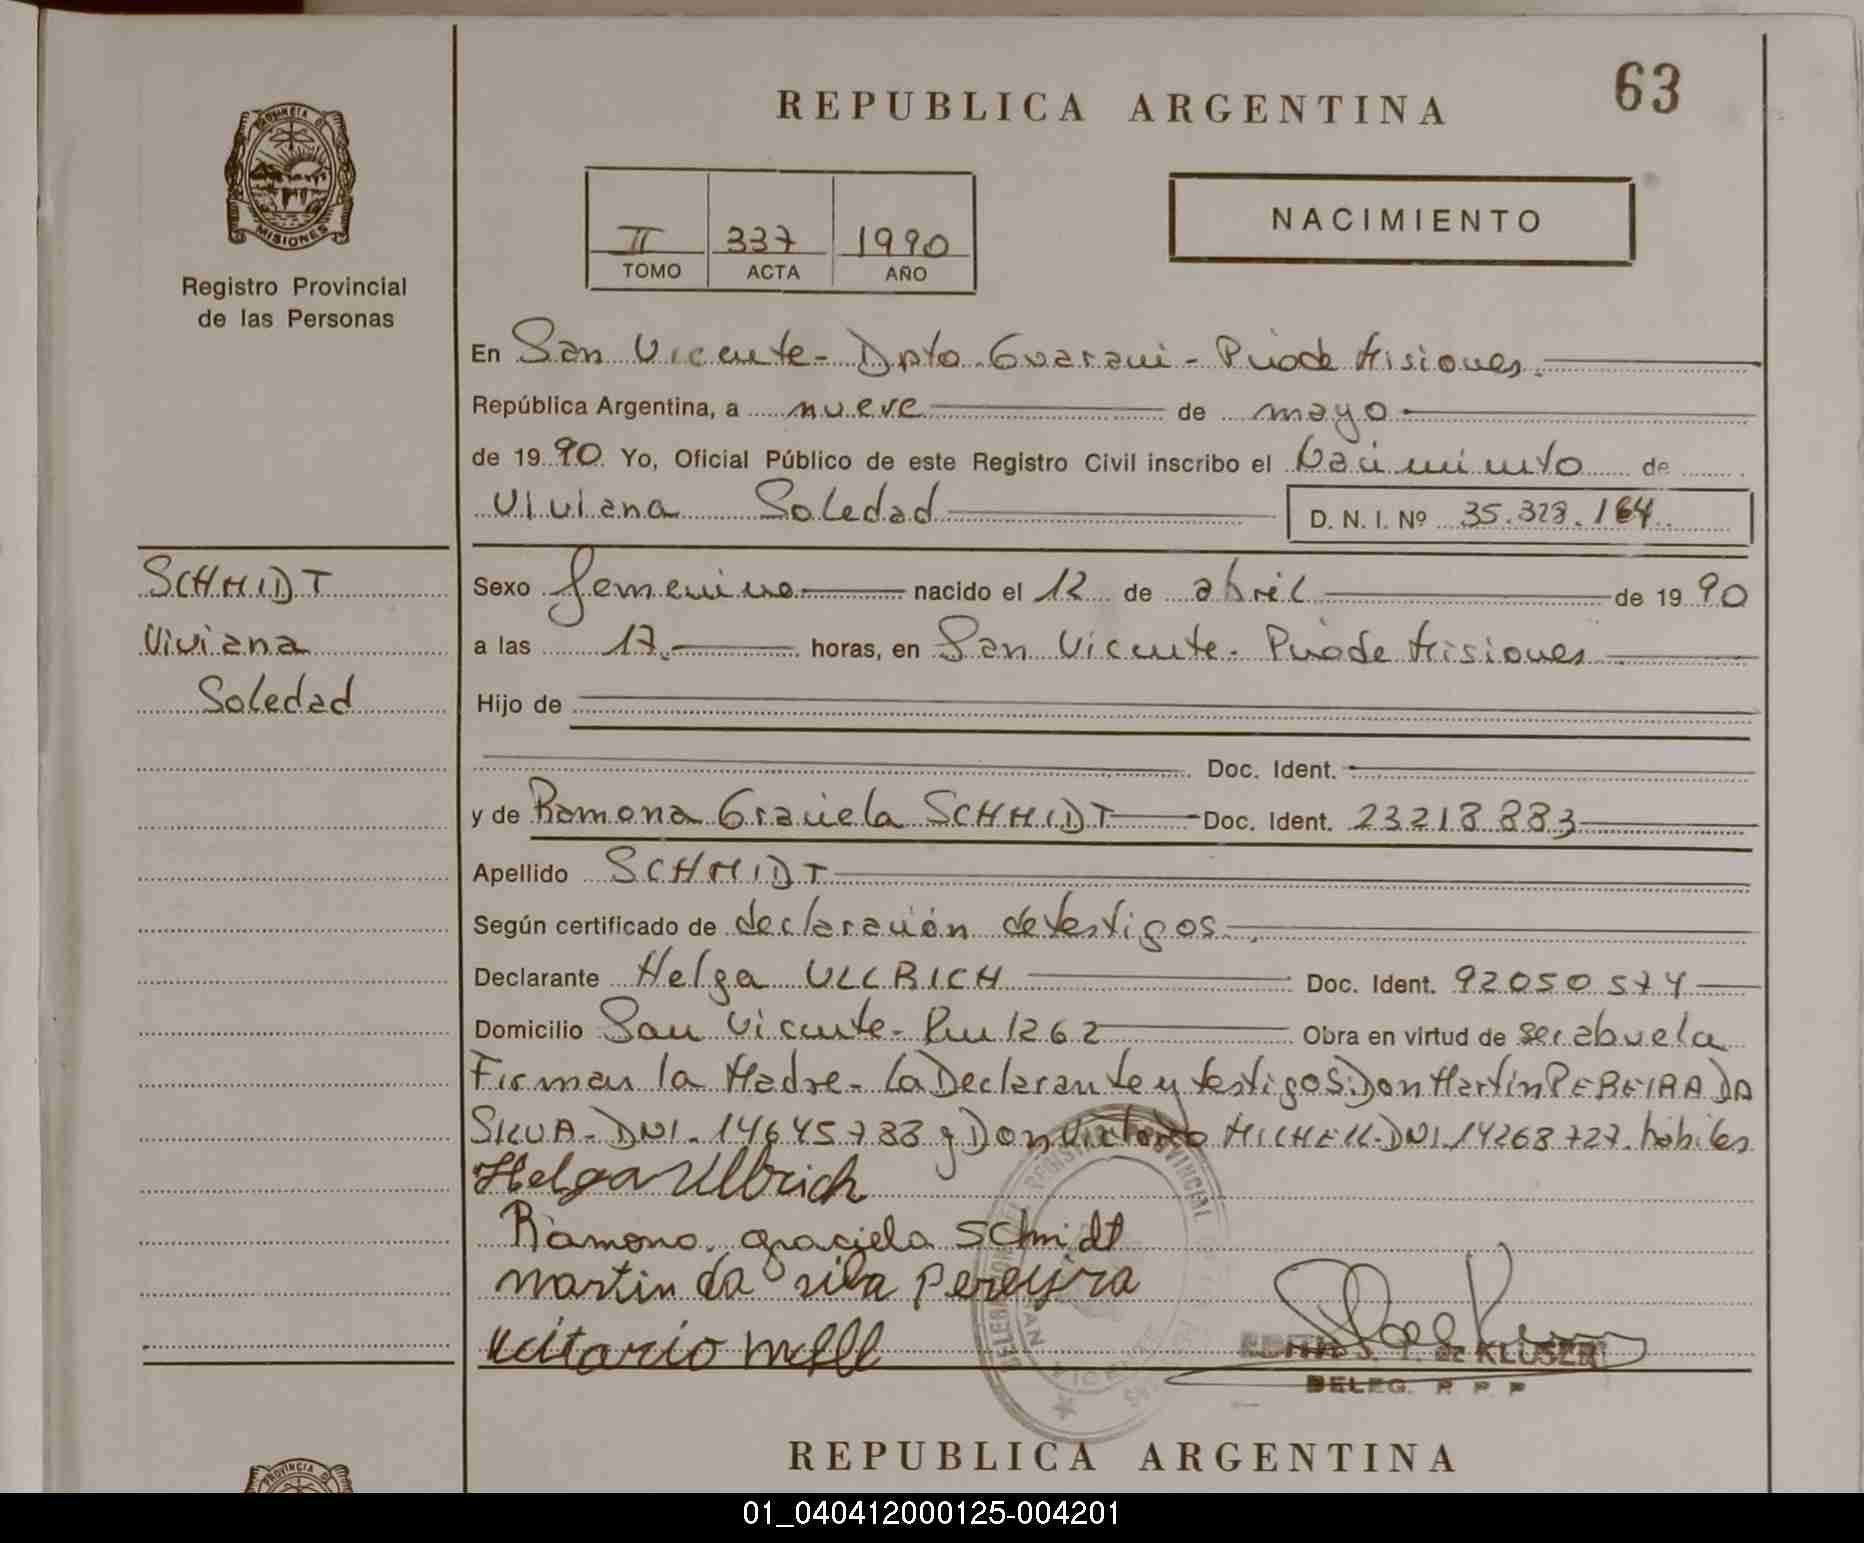 63
REPUBLICA ARGENTINA
PROVINCIA DE
MISIONES
Registro Provincial
de las Personas
II 337 1990
TOMO ACTA AÑO
NACIMIENTO
En San Vicente - Dpto. Guarani - Pciade Misiones.
República Argentina, a nueve de mayo
de 1990 Yo, Oficial Público de este Registro Civil inscribo el Nacimiento de
Viviana Soledad D. N. I. Nº 35.323.164
SCHMIDT
Viviana
Soledad
Sexo femenino nacido el 12 de abril de 1990
a las 17. horas, en San Vicente - Pciade Misiones
Hijo de
Doc. Ident.
y de Ramona Graciela SCHMIDT Doc. Ident. 23218883
Apellido SCHMIDT
Según certificado de declaración de testigos.
Declarante Helga ULLRICH Doc. Ident. 92050574
Domicilio San Vicente - 1262 Obra en virtud de ser abuela
Firman la Madre - la Declarante y testigos: Don Martín PEREIRA DA
SILVA - DNI. 14645783 y Don Victorio MICHELL - DNI 14268727. hábiles
Helga Ullbrich
Ramona graciela Schmidt
martin da silva Pereyra
KLUSER
DELEG. R. P. P
REPUBLICA ARGENTINA
PROVINCIA D
01_040412000125-004201